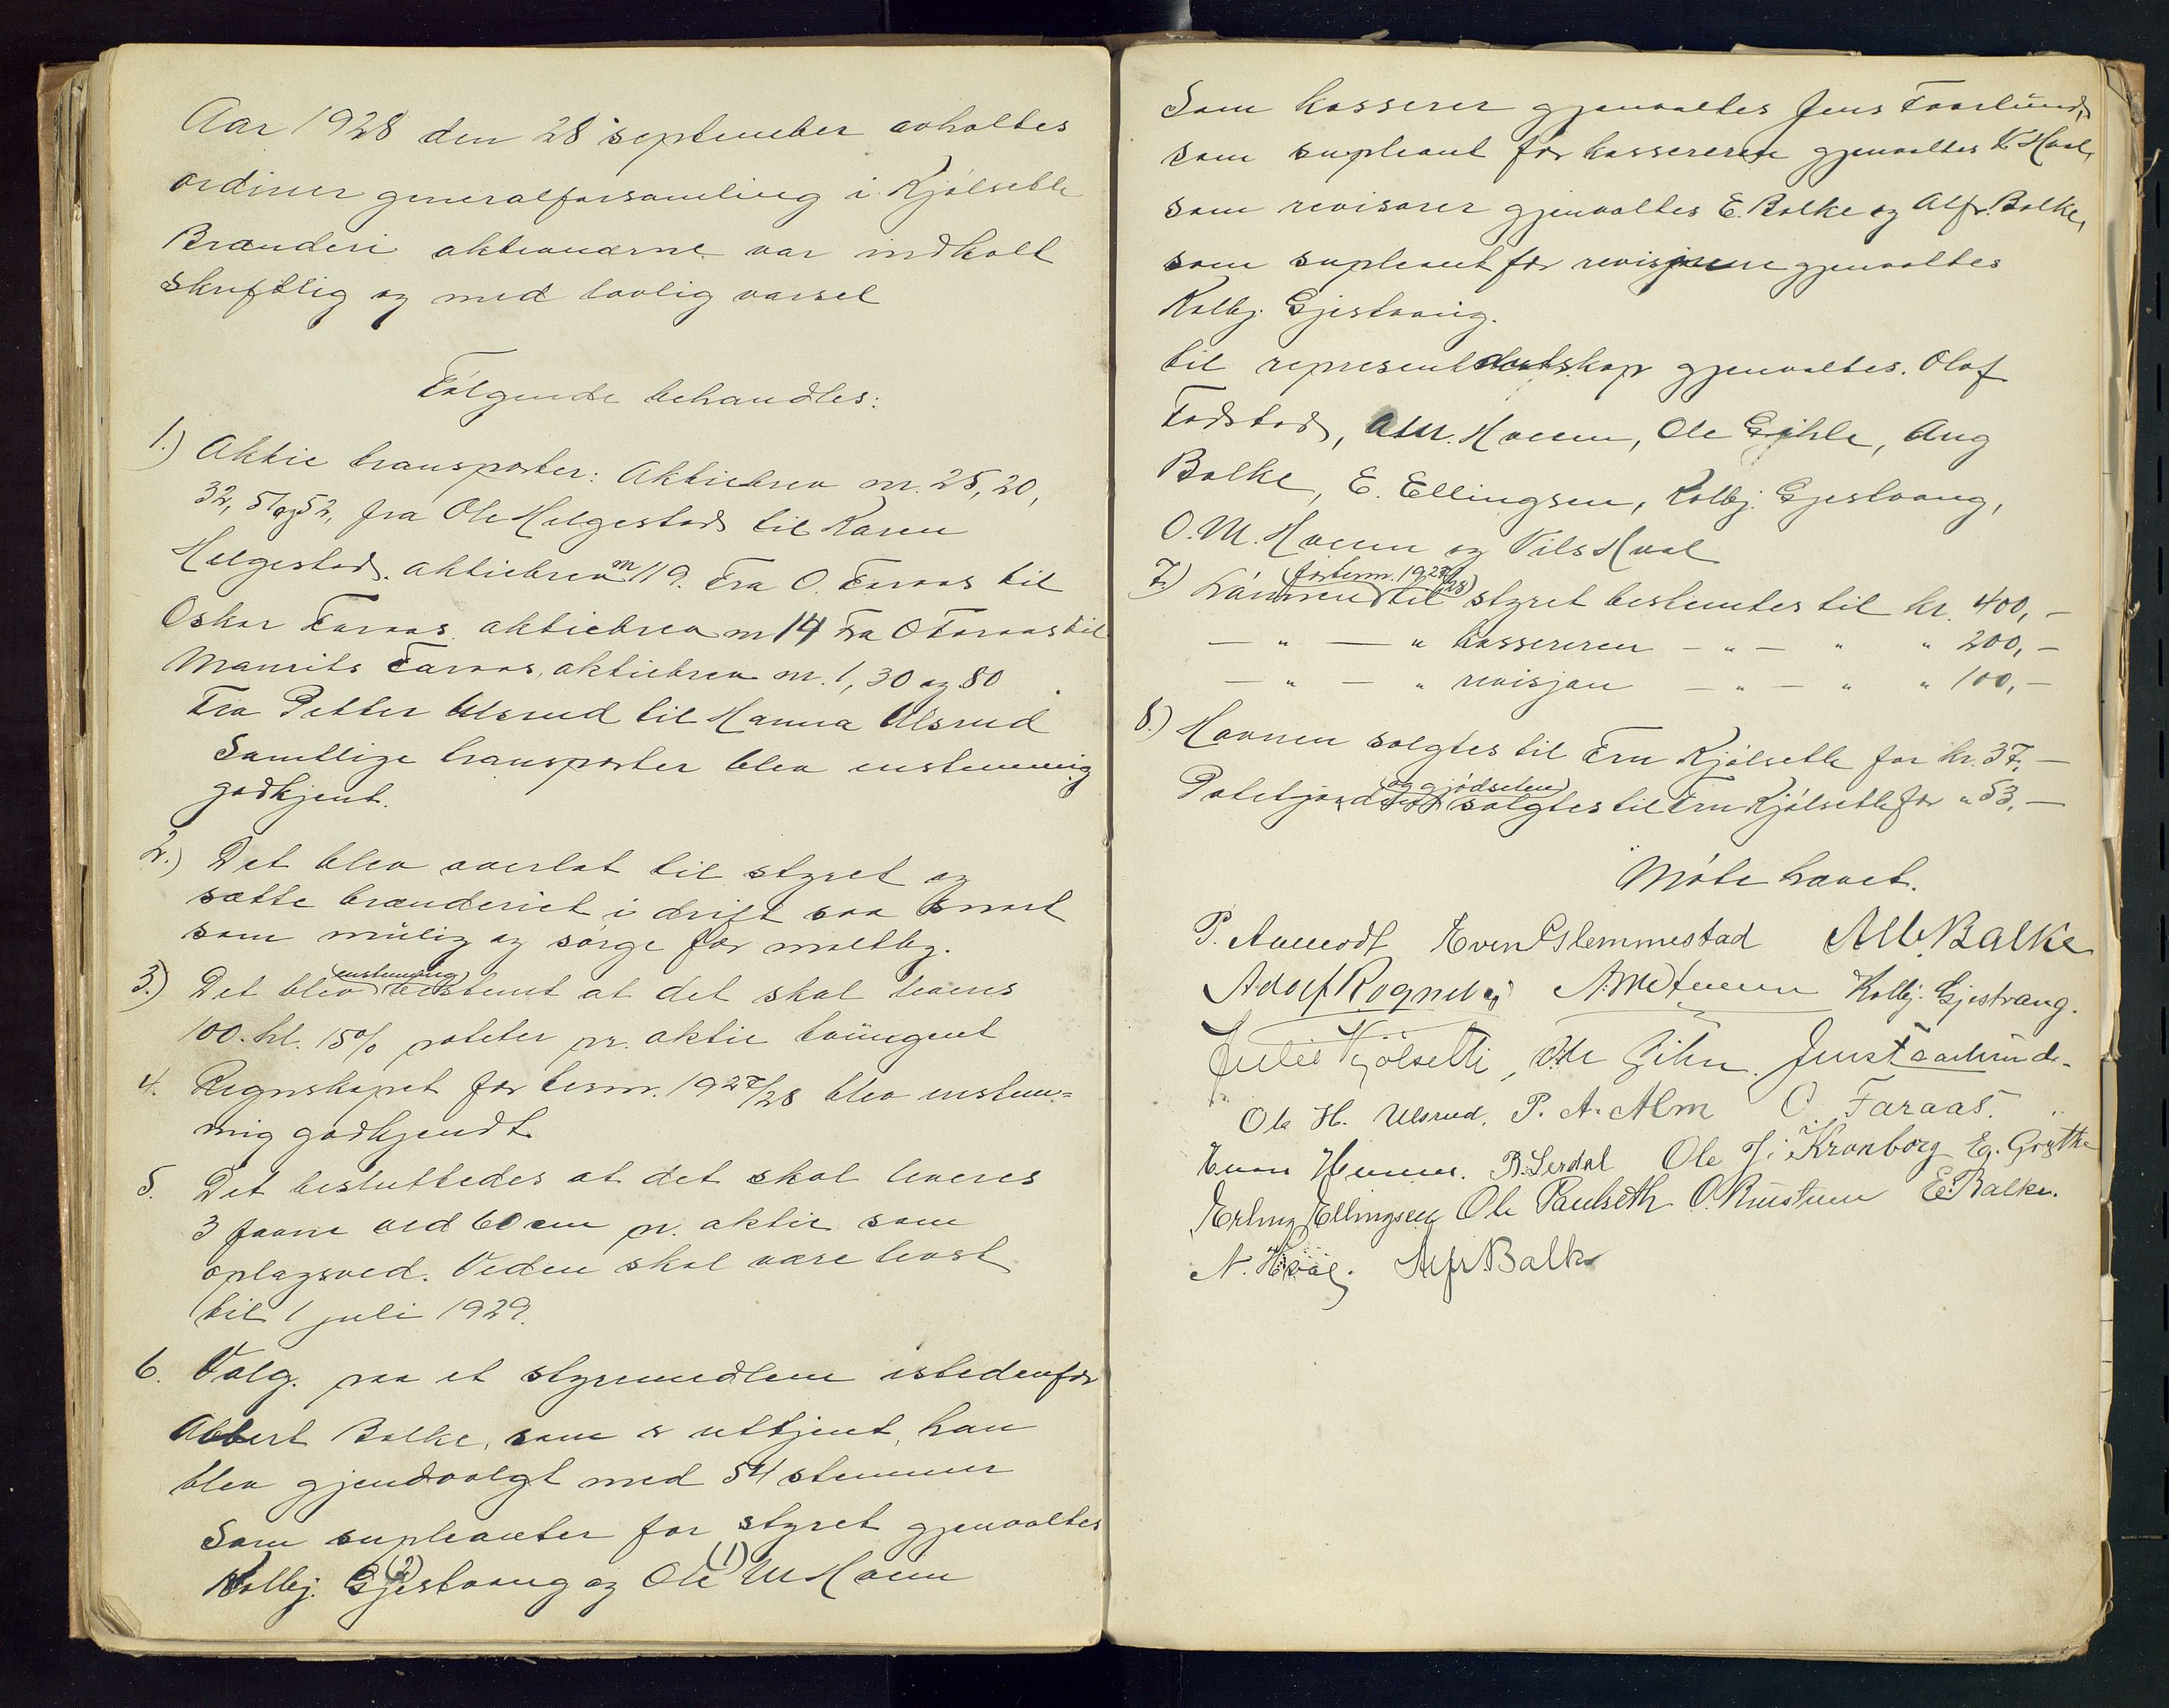 Aar 1928 den 28 september avholtes
ordiner generalforsamling i Kjølsetle
Brænderi aktionærne var indkalt
skriftlig og med lovlig varsel
Følgende behandles:
1.) Aktie transporter: Aktiebrev nr. 25, 20,
32, 51 og 52, fra Ole Helgestad til Karen
Helgestad. aktiebrev nr 119. Fra O. Faraas til
Oskar Faraas. aktiebrev nr 14 Fra O Faraas til
Maurits Faraas, aktiebrev nr. 1, 30 og 80
Fra Petter Ulsrud til Hanna Ulsrud
Samtlige transporter blev enstemmig
godkjent.
2.) Det blev overlat til styret og
sætte brænderiet i drift saa snart
som mülig og sørge for maltbyg.
3.) Det blev enstemmig bestemt at det skal leveres
100. hl. 15% poteter pr. aktie tvüngent
4. Regnskapet for term. 1927/28 blev enstem=
mig godkjendt.
5. Det besluttedes at det skal leveres
3 favne ved 60 cm pr. aktie som
oplagsved. Veden skal være levert
til 1 juli 1929.
6. Valg. paa et styremedlem istedenfor
Albert Balke, som er uttjent, han
blev gjendvalgt med 54 stemmer
Som supleanter for styret gjenvaltes
Kolbj. Gjestvang (2) og Ole M Hveem (1)
Som kasserer gjenvaltes Jens Faarlund,
som supleant for kassereren gjenvaltes N. Hval,
som revisorer gjenvaltes E. Balke og Alfr. Balke,
som supleant for revisjonen gjenvaltes
Kolbj. Gjestvang.
til representantskap gjenvaltes. Olaf
Fodstad, A.M. Hveem, Ole Gihle, Aug
Balke, E. Ellingsen, Kolbj. Gjestvang,
O. M. Hveem og Nils Hval
7.) Lønnen for term. 1927/28 til styret bestemtes til kr. 400,-
— " — " kassereren — " — " " 200,-
— " — " revisjon — " — " " 100,-
8.) Havnen solgtes til Fru Kjølsetle for kr. 37,—
Potetjorden og gjødselen solgtes til Fru Kjølsetle for " 53,—
Møte hævet.
P. Aamodt Even Slemmestad Alb. Balke
Adolf Rognebj A M Hveem Kolbj. Gjestvang.
Julie Kjølsetli, Ole Gihle. Jens Faarlund.
Ole H. Ulsrud, P. A. Alm O. Faraas.
Even Hveem. B. Lerdal Ole J. Kronborg E. Grythe
Erling Ellingsen Ole Paulseth O. Rustuen E. Balke.
N. Hval. Alfr. Balke